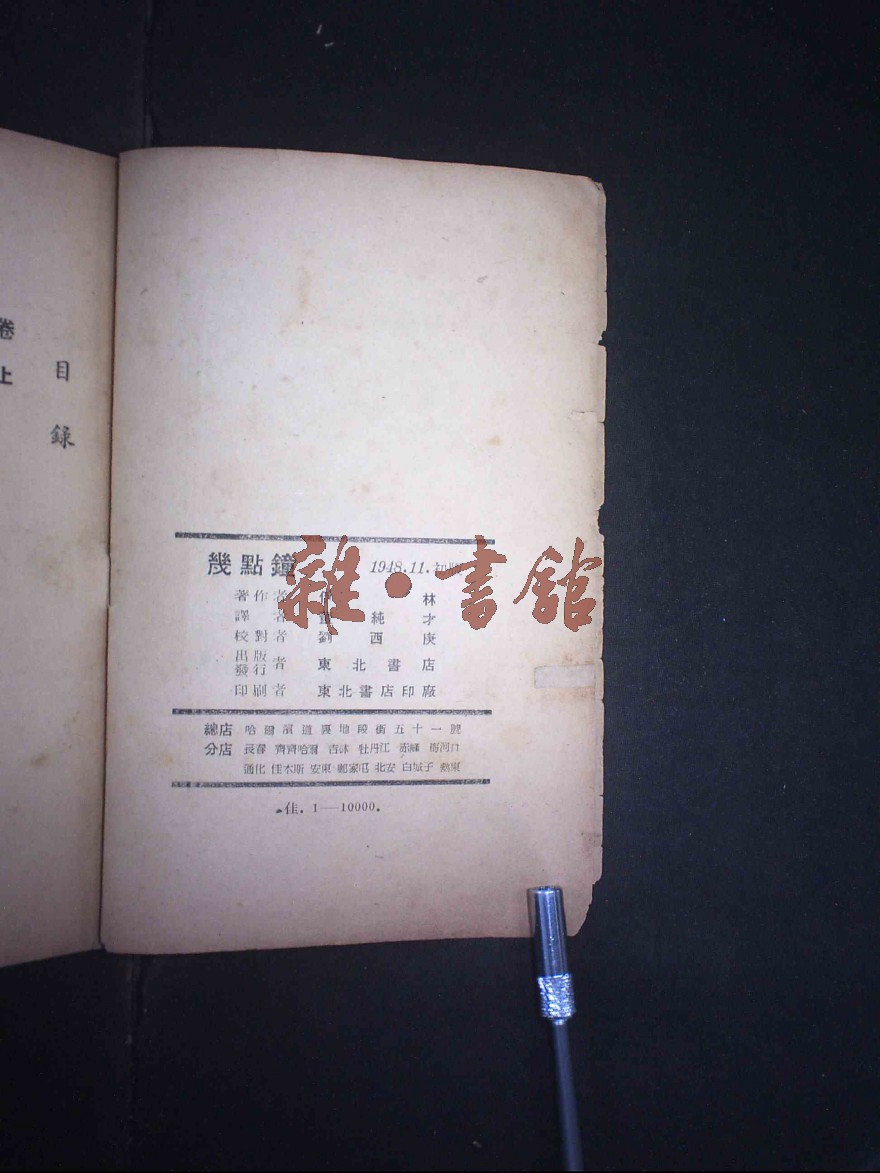 卷上
目錄
幾點鐘 1948.11.初版
著作者 伊林
譯者 董純才
校對者 劉西庚
出版發行者 東北書店
印刷者 東北書店印廠
總店 哈爾濱道裏地段街五十一號
分店 長春 齊齊哈爾 吉林 牡丹江
通化 佳木斯 安東 鄭家屯 北安 白城子
佳.1—10000.
雜·書館